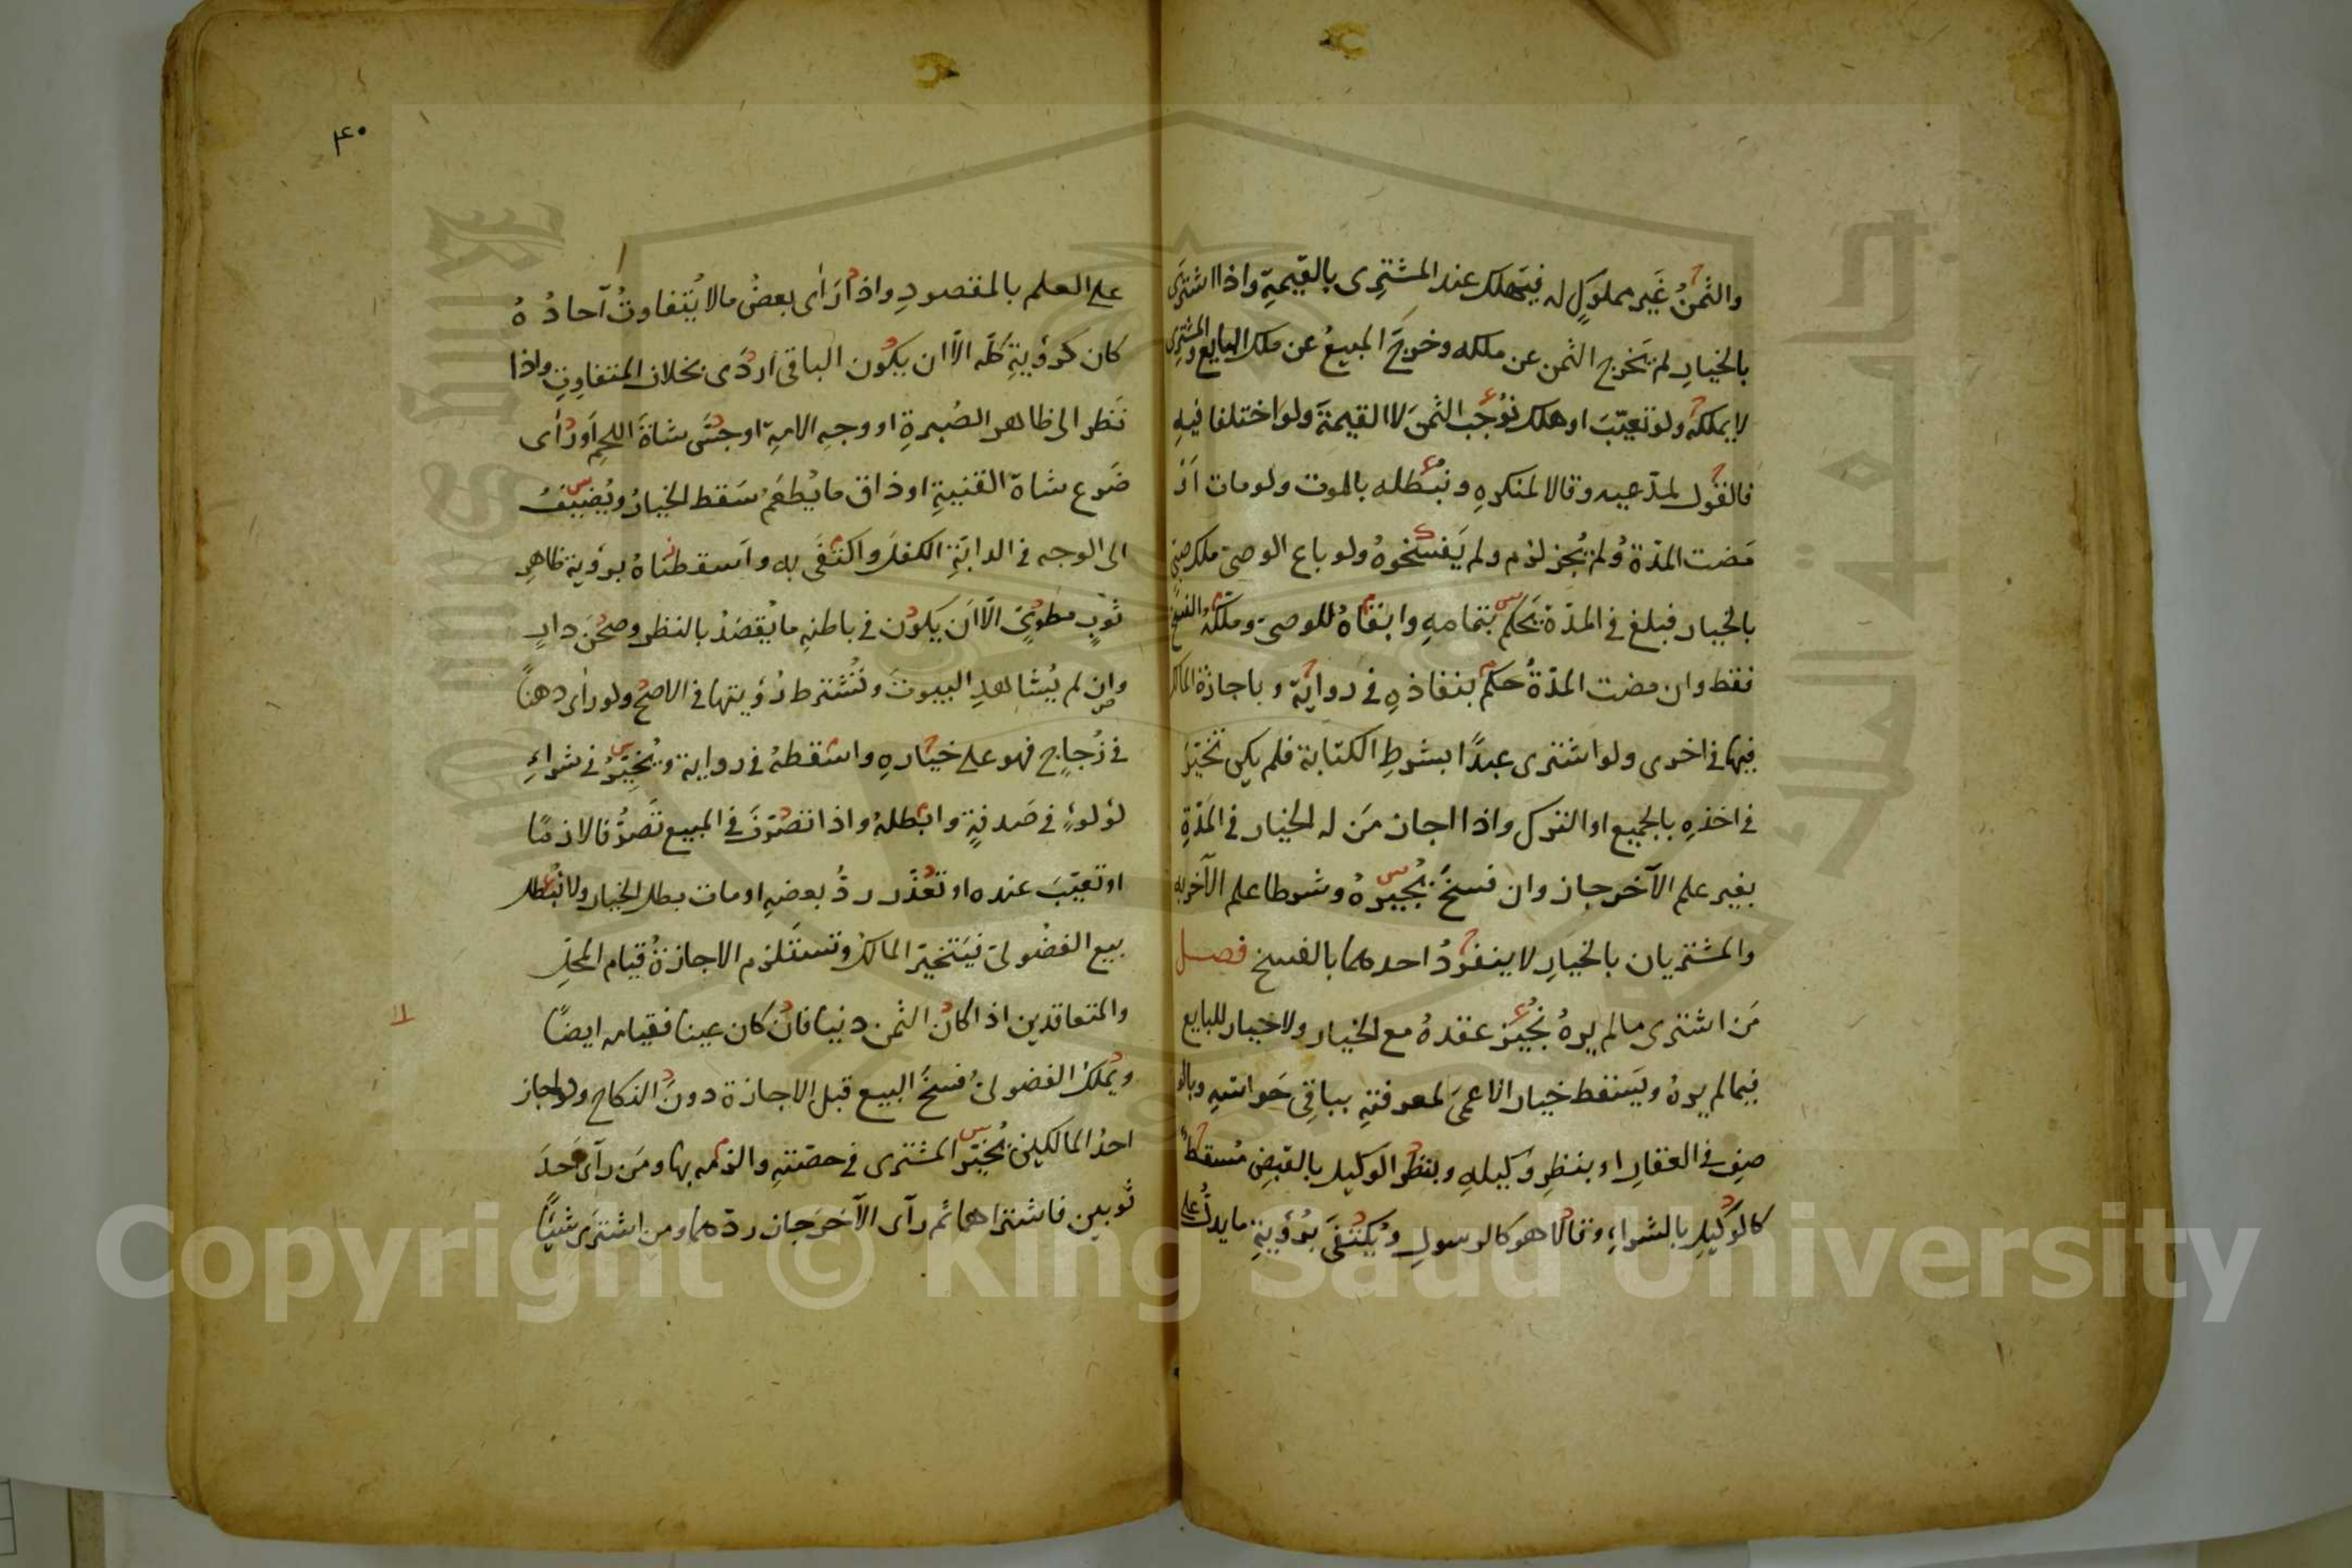 والثمنُ غَير مملوكٍ له فيَهلك عند المشترِى بالقيمةِ واذا اشترَى
بالخيارِ لم يَخرج الثمن عن ملكه وخروجَ المبيعُ عن ملك البايع والمشترى
لا يملكه ولو تعيّبَ او هلك نوُجب الثمنَ لا القيمةَ ولو اختلفا فيهِ
فالقول لمدّعيه وقالا لمنكرهِ ونبُطله بالموت ولو مات اَوْ
مَضت المدّة وُلم يُجز لزم ولم يَفسخوهُ ولو باع الوصىّ ملك صبىّ
بالخيار فبلغ فى المدّة يَحكم بتمامهِ وابقاهُ للوصىّ وملكهُ الفسخ
فقط وان مضت المدّةُ حكم بنفاذهِ فى روايةٍ وباجازة المالك
فيها فى اخرى ولو اشترى عبدًا بشرطِ الكتابة فلم يكن تخيّرَ
فى اخذهِ بالجميع او الترك واذا اجاز مَن له الخيار فى المَدّةِ
بغير علم الآخر جاز وان فسخَ يُجيزهُ وشرطا علم الآخر به
والمشتريان بالخيارِ لا ينفردُ احدهما بالفسخ فصل
مَن اشترى مالم يرهُ نُجيْز عقدهُ مع الخيار ولا خيار للبايع
فيما لم يرهُ ويَسقط خيار الاعمىَ لمعرفتهِ بباقِى حَواسّهِ وبالو
صفِ فى العقارِ او بنظرِ وكيلهِ ونظرُ الوكيل بالقبضِ مُسقطٌ
كالوكيلِ بالشراءِ وقالا هو كالرسولِ ويُكتفَى بُرؤيةِ ما يدلُّ على
٤٠
على العلم بالمقصودِ واذا رَأى بعضُ مالا يُتفاوتُ آحادُهُ
كان كرؤيةِ كلّه الاّ ان يكون الباقى اردَى بخلاف المتفاوِتِ واذا
نَظر الى ظاهر الصُبرةِ او وجهِ الامةِ او جسَّ شاةَ اللحمِ اَو رأى
ضَرع شاة القنيةِ او ذاق ما يُطعَمُ سَقط الخيارُ ويُضيفُ
الى الوجه فى الدابّةِ الكفلَ واكتفَى به واَسقطناهُ برؤية ظاهرِ
ثوبٍ مطوىٍّ الاّ اَن يكون فى باطنهِ ما يُقصَدُ بالنظر وصحن دارٍ
وان لم يُشاهدِ البيوتَ ونُشترط رُؤيتها فى الاصحّ ولو رأى دهنًا
فى زُجاجٍ فهو على خيارهِ واسقطهُ فى رواية ويُخيّرُ فى شراءِ
لؤلوءٍ فى صَدفةٍ وابطلهُ واذا تصرّفَ فى المبيع تَصرُّفا لازمًا
او تعيّبَ عنده او تعذّر ردُّ بعضهِ او مات بطل الخيار ولا نُبطل
بيع الفضُولىّ فيَتخيّر المالكُ وتستَلزم الاجازةُ قيام المَحلِّ
والمتعاقدين اذا كان الثمن دَينا فان كان عينا فقيامه ايضًا
ويُملك الفضولىّ فسخَ البيع قبل الاجازة دونَ النكاح ولو اجاز
احدُ المالكَين يُخيّر المشترى فى حصّتهِ والزمه بها ومَن رآى اَحدَ
ثوبين فاشتراهما ثم رآى الآخرَ جاز ردّهما ومن اشترَى شيئًا
Copyright © King Saud University